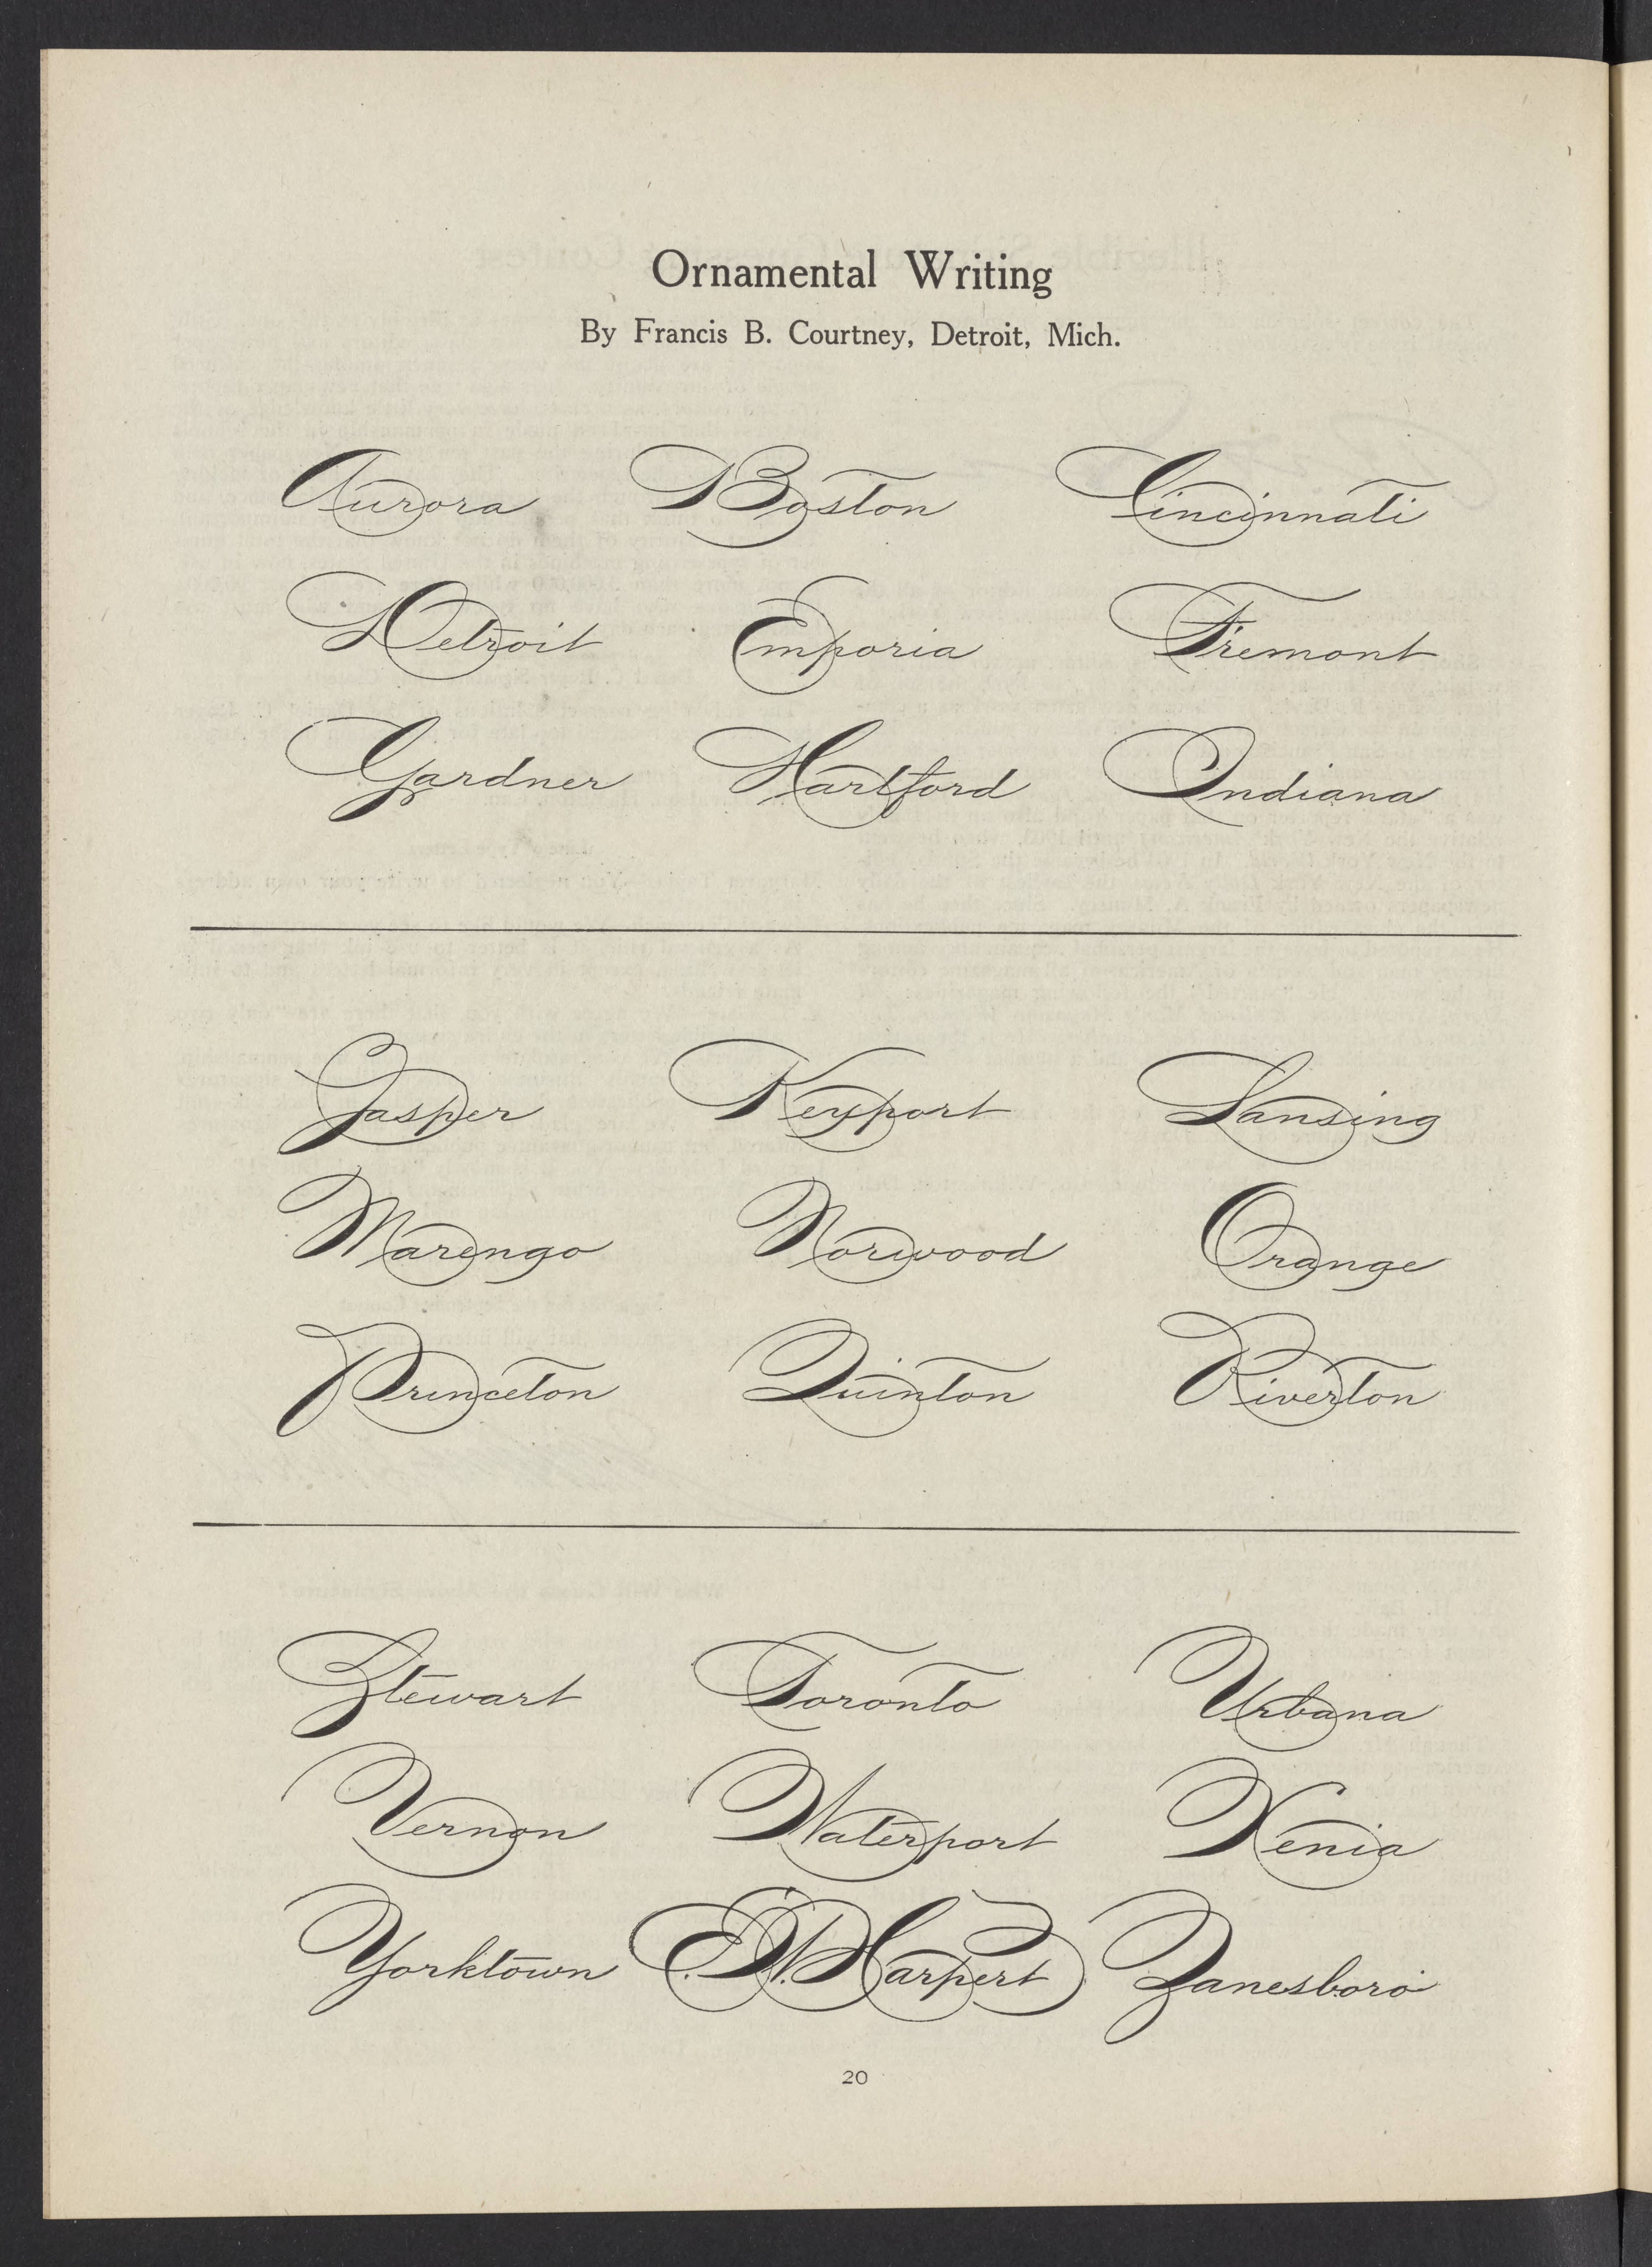 Ornamental Writing
By Francis B. Courtney, Detroit, Mich.
Aurora Boston Cincinnati
Detroit Emporia Fremont
Gardner Hartford Indiana
Jasper Keyport Lansing
Marengo Norwood Orange
Princeton Quinton Riverton
Stewart Toronto Urbana
Vernon Waterport Xenia
Yorktown Harpert Zanesboro
20